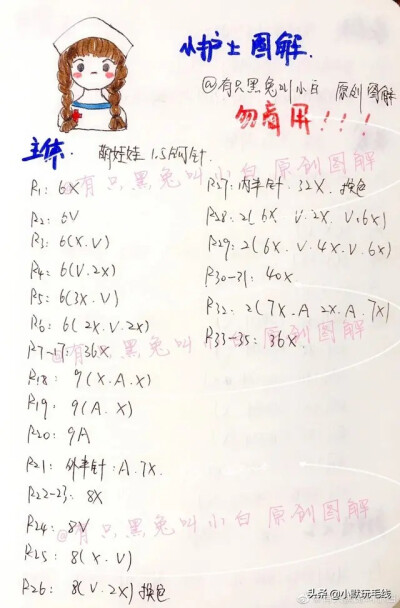 小护士图解.
@有只黑兔叫小白 原创图解
勿商用！！！
主体. 萌娃娃 1.5钩针.
R1: 6X
R2: 6V
R3: 6(X.V)
R4: 6(V.2X)
R5: 6(3X.V)
R6: 6(2X.V.2X)
R7-17: 36X
R18: 9(X.A.X)
R19: 9(A.X)
R20: 9A
R21: 外半针: A.7X.
R22-23: 8X
R24: 8V
R25: 8(X.V)
R26: 8(V.2X) 换色
R27: 内半针. 32X. 换色
R28: 2(6X. V.2X. V.6X)
R29: 2(6X.V.4X.V.6X)
R30-31: 40X
R32: 2(7X.A 2X.A.7X)
R33-35: 36X.
@有只黑兔叫小白原创图解
@有只黑兔叫小白原创图解
@有只黑兔叫小白原创图解
头条@小默玩毛线